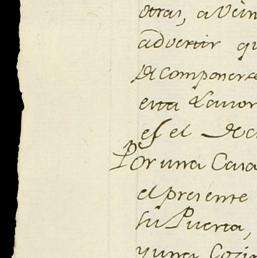 otras, a Vein
advertir qu
componerse
esta Lavor
es el
Por una Casa
el presente
su Puerta,
y una Cozin